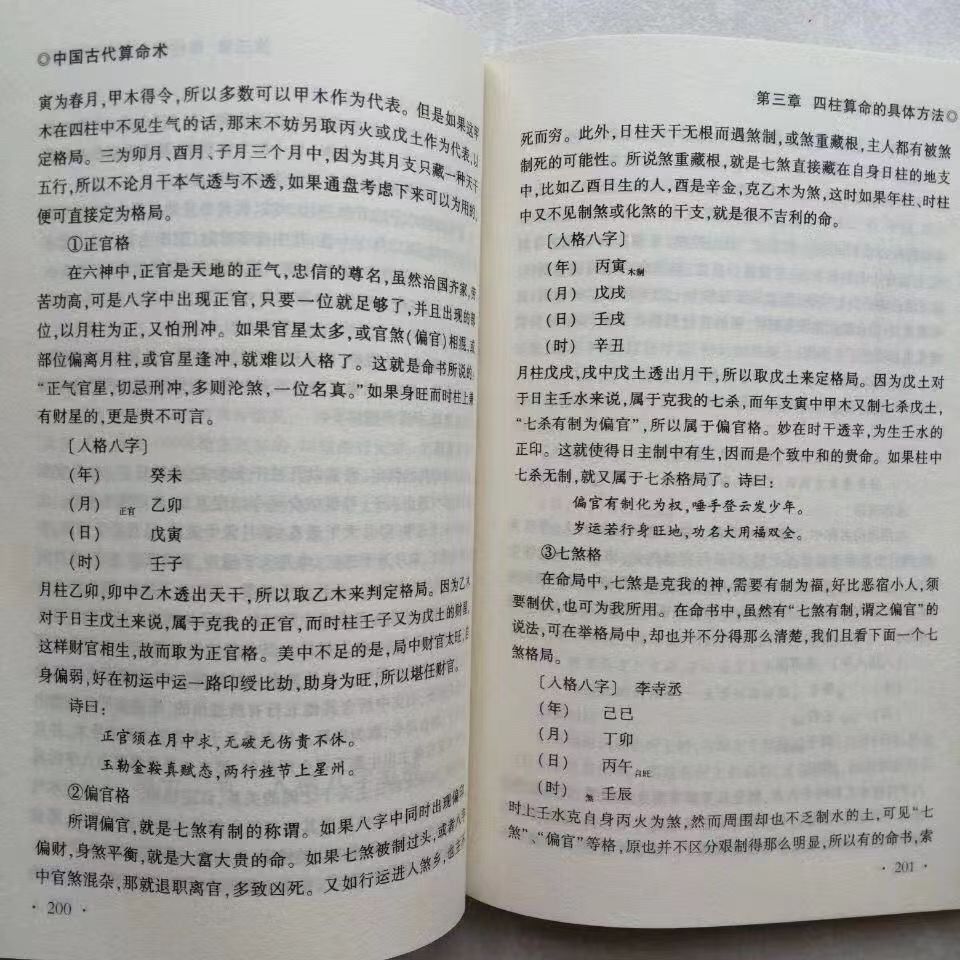 ◎中国古代算命术
寅为春月，甲木得令，所以多数可以甲木作为代表。但是如果这甲
木在四柱中不见生气的话，那末不妨另取丙火或戊土作为代表，以
定格局。三为卯月、酉月、子月三个月中，因为其月支只藏一种天干
五行，所以不论月干本气透与不透，如果通盘考虑下来可以为用的，
便可直接定为格局。
①正官格
在六神中，正官是天地的正气，忠信的尊名，虽然治国齐家，劳
苦功高，可是八字中出现正官，只要一位就足够了，并且出现的部
位，以月柱为正，又怕刑冲。如果官星太多，或官煞（偏官）相混，或
部位偏离月柱，或官星逢冲，就难以人格了。这就是命书所说的：
“正气官星，切忌刑冲，多则沦煞，一位名真。”如果身旺而时柱上兼
有财星的，更是贵不可言。
［人格八字］
（年） 癸未
（月） 正官 乙卯
（日） 戊寅
（时） 壬子
月柱乙卯，卯中乙木透出天干，所以取乙木来判定格局。因为乙木
对于日主戊土来说，属于克我的正官，而时柱壬子又为戊土的财星，
这样财官相生，故而取为正官格。美中不足的是，局中财官太旺，自
身偏弱，好在初运中运一路印绶比劫，助身为旺，所以堪任财官。
诗曰：
正官须在月中求，无破无伤贵不休。
玉勒金鞍真赋态，两行旌节上星州。
②偏官格
所谓偏官，就是七煞有制的称谓。如果八字中同时出现偏官、
偏财，身煞平衡，就是大富大贵的命。如果七煞被制过头，或者八字
中官煞混杂，那就退职离官，多致凶死。又如行运进人煞乡，也主
· 200 ·
第三章 四柱算命的具体方法◎
死而穷。此外，日柱天干无根而遇煞制，或煞重藏根，主人都有被煞
制死的可能性。所说煞重藏根，就是七煞直接藏在自身日柱的地支
中，比如乙酉日生的人，酉是辛金，克乙木为煞，这时如果年柱、时柱
中又不见制煞或化煞的干支，就是很不吉利的命。
［人格八字］
（年） 丙寅 木制
（月） 戊戌
（日） 壬戌
（时） 辛丑
月柱戊戌，戌中戊土透出月干，所以取戊土来定格局。因为戊土对
于日主壬水来说，属于克我的七杀，而年支寅中甲木又制七杀戊土，
“七杀有制为偏官”，所以属于偏官格。妙在时干透辛，为生壬水的
正印。这就使得日主制中有生，因而是个致中和的贵命。如果柱中
七杀无制，就又属于七杀格局了。诗曰：
偏官有制化为权，唾手登云发少年。
岁运若行身旺地，功名大用福双全。
③七煞格
在命局中，七煞是克我的神，需要有制为福，好比恶宿小人，须
要制伏，也可为我所用。在命书中，虽然有“七煞有制，谓之偏官”的
说法，可在举格局中，却也并不分得那么清楚，我们且看下面一个七
煞格局。
［人格八字］ 李寺丞
（年） 己巳
（月） 丁卯
（日） 丙午 自旺
（时） 煞 壬辰
时上壬水克自身丙火为煞，然而周围却也不乏制水的土，可见“七
煞”、“偏官”等格，原也并不区分艰制得那么明显，所以有的命书，索
· 201 ·